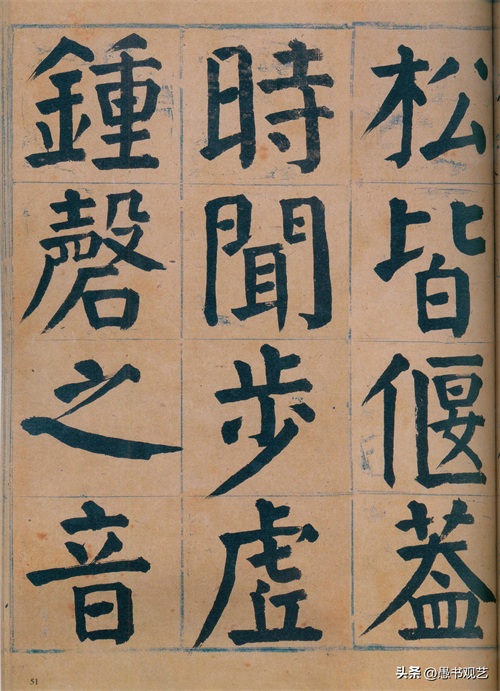 松皆偃蓋
時聞步虛
鍾磬之音
51
头条 @愚书观艺